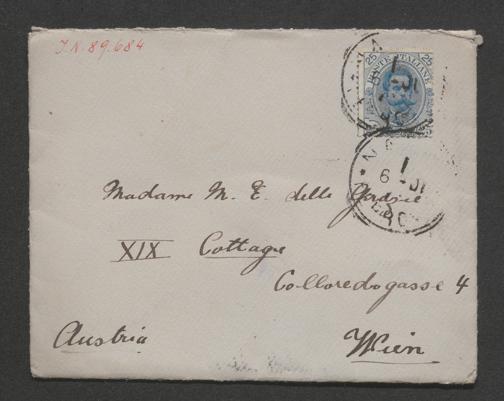 J.N. 89.684
25 POSTE ITALIANE 25
Madame M. E. delle Grazie
XIX Cottage
Colloredogasse 4
Austria Wien